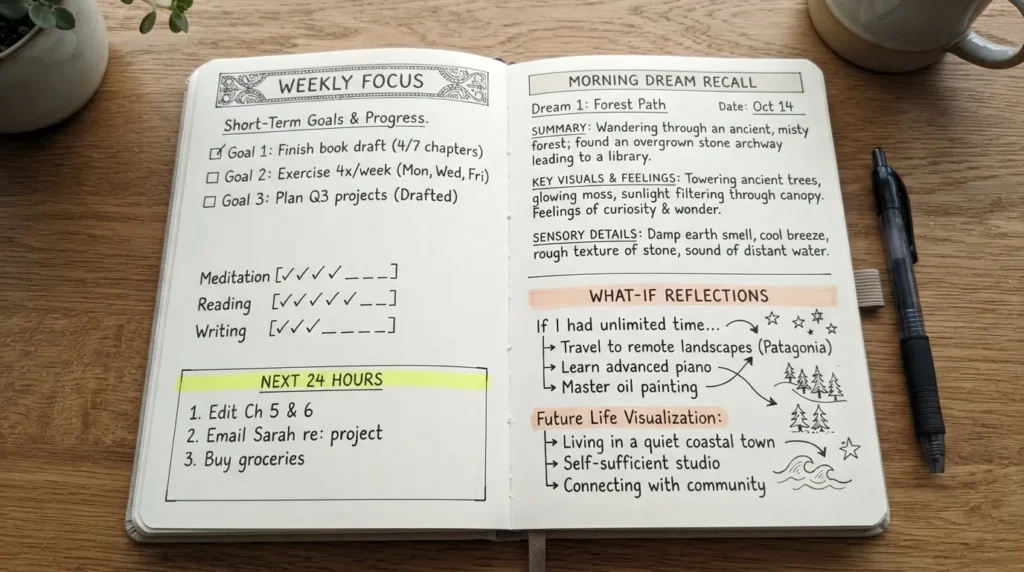 WEEKLY FOCUS
Short-Term Goals & Progress.
☑ Goal 1: Finish book draft (4/7 chapters)
☐ Goal 2: Exercise 4x/week (Mon, Wed, Fri)
☐ Goal 3: Plan Q3 projects (Drafted)
Meditation [✓✓✓✓___]
Reading [✓✓✓✓✓__]
Writing [✓✓✓____]
NEXT 24 HOURS
1. Edit Ch 5 & 6
2. Email Sarah re: project
3. Buy groceries
MORNING DREAM RECALL
Dream 1: Forest Path Date: Oct 14
SUMMARY: Wandering through an ancient, misty
forest; found an overgrown stone archway
leading to a library.
KEY VISUALS & FEELINGS: Towering ancient trees,
glowing moss, sunlight filtering through canopy.
Feelings of curiosity & wonder.
SENSORY DETAILS: Damp earth smell, cool breeze,
rough texture of stone, sound of distant water.
WHAT-IF REFLECTIONS
If I had unlimited time...
Travel to remote landscapes (Patagonia)
Learn advanced piano
Master oil painting
Future Life Visualization:
Living in a quiet coastal town
Self-sufficient studio
Connecting with community